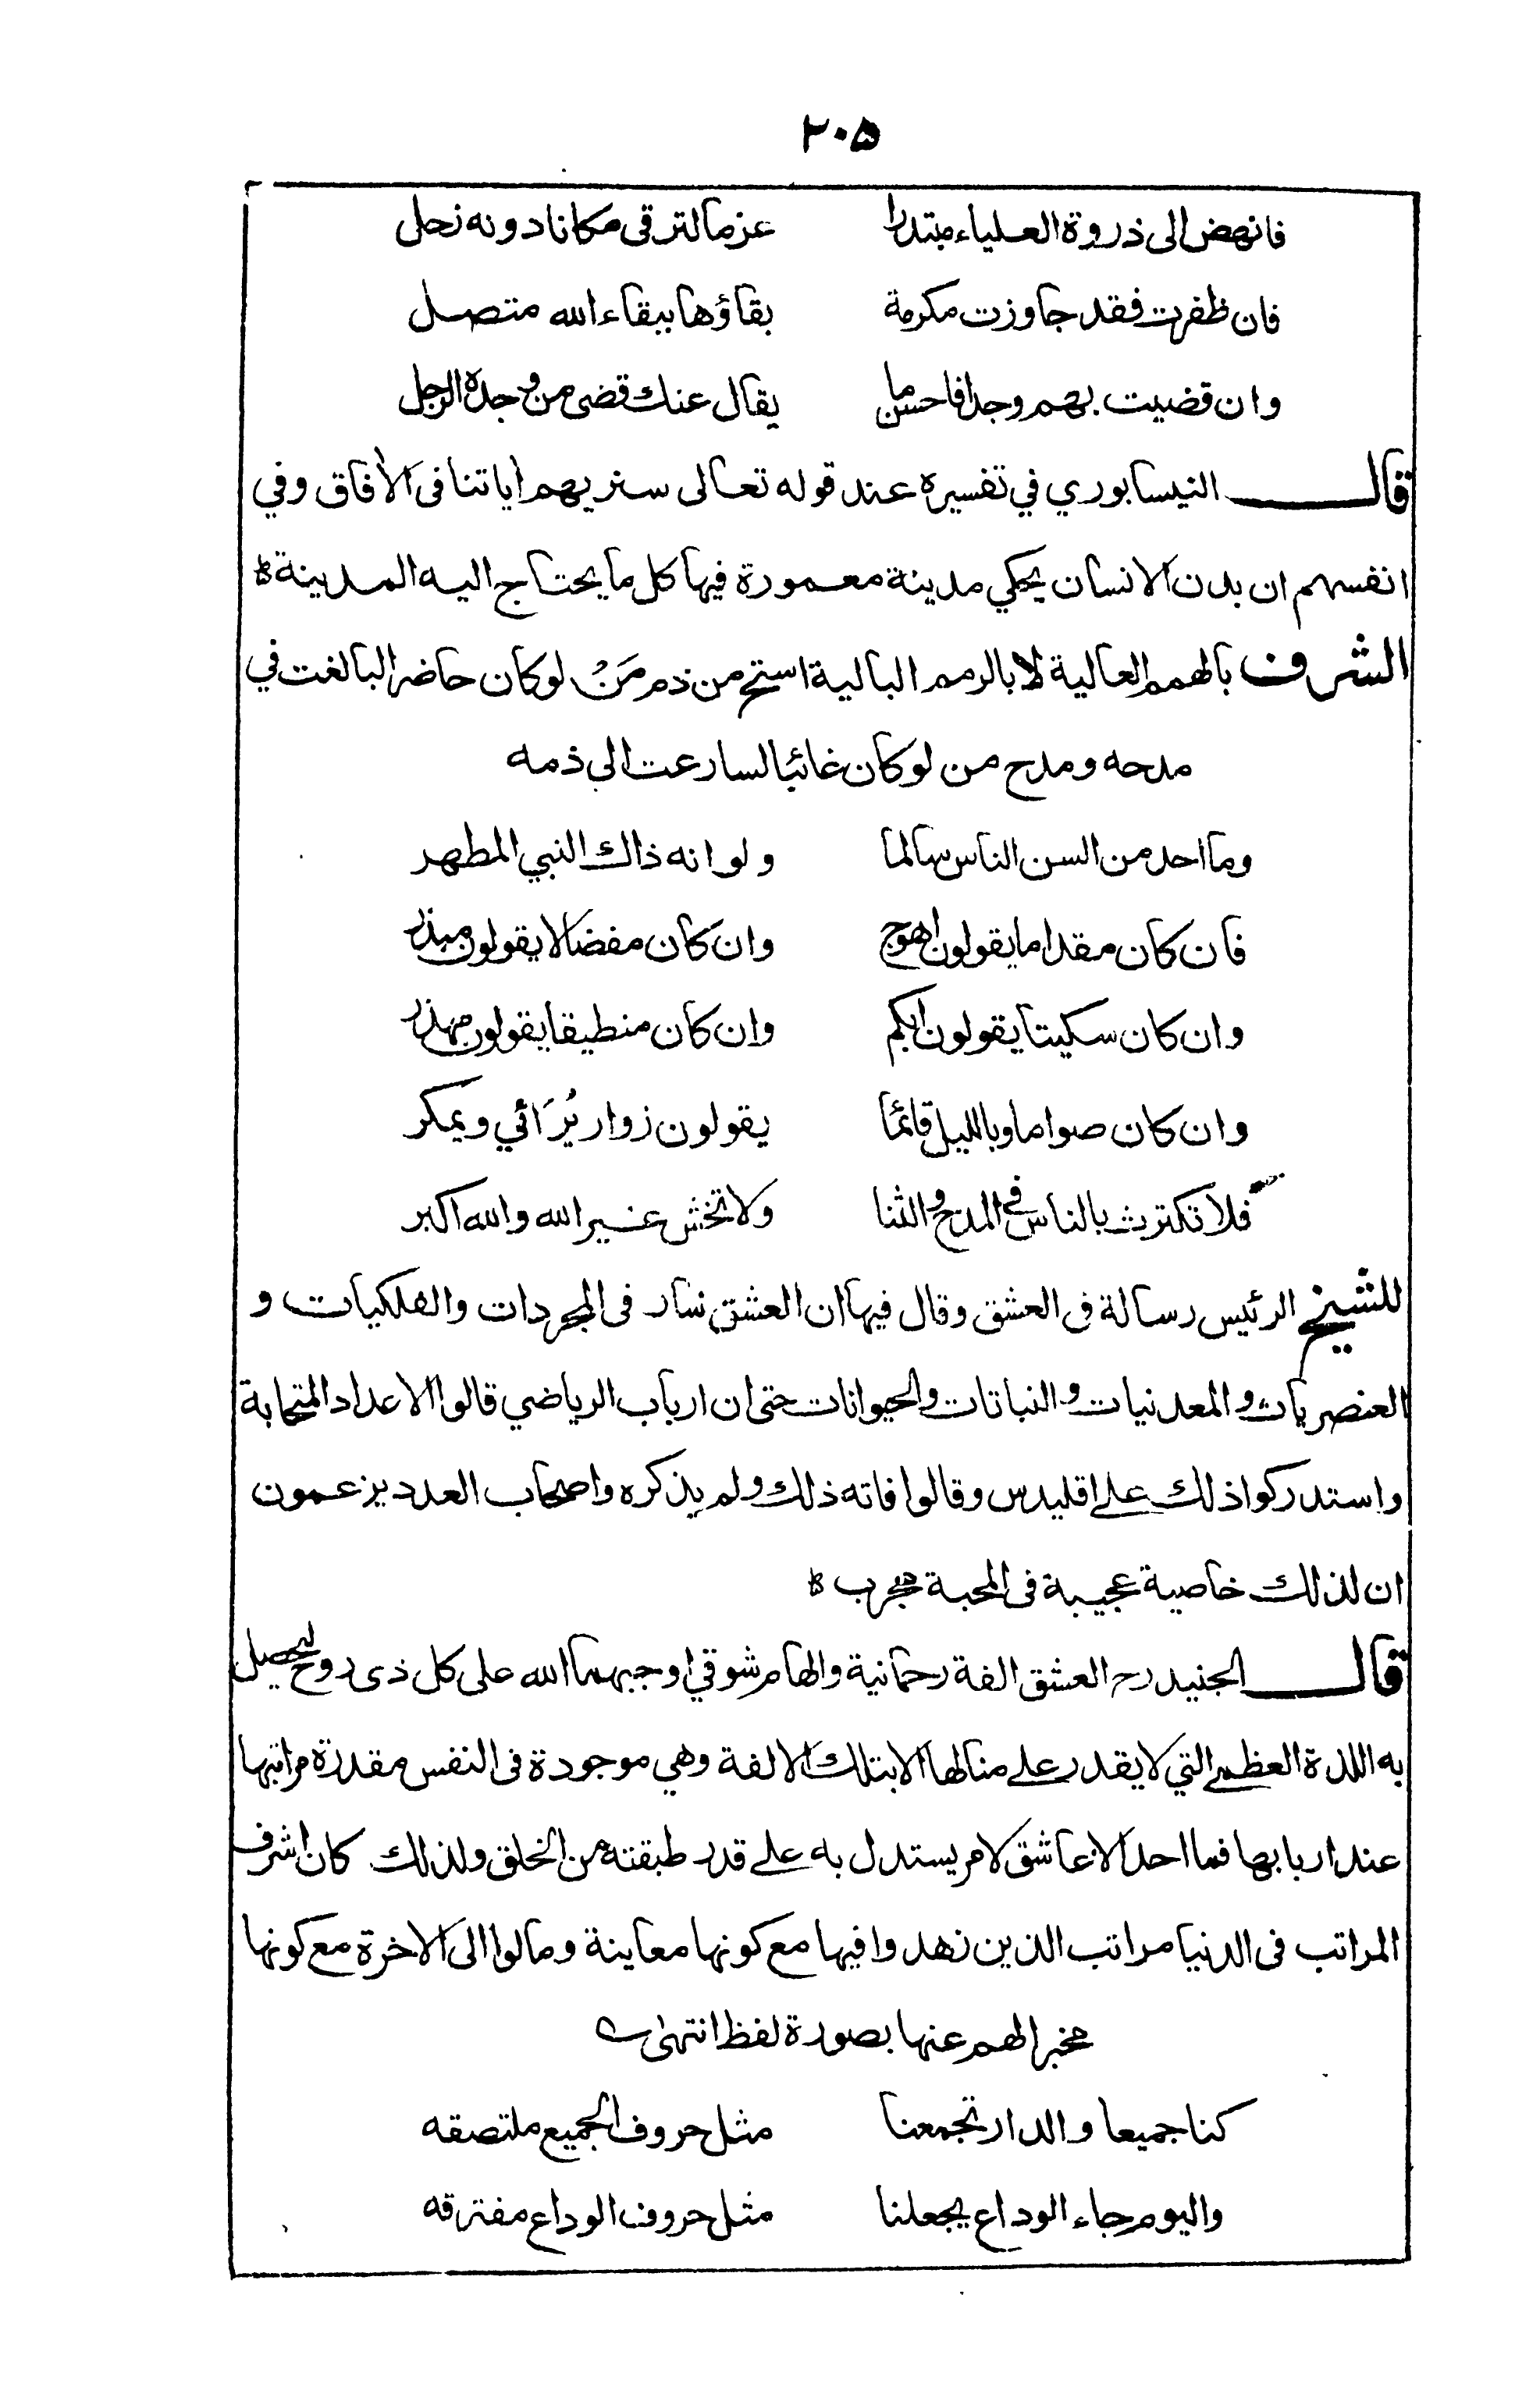 ۲۰۵
فانهض الى ذروة العلياء مبتدرا عزما لترقى مكانا دونه زحل
فان ظفرت فقد جاوزت مكرمة بقاؤها ببقاء الله متصل
وان قضيت بهم وجدا فاحسن ما يقال عنك قضى من وجده الرجل
قال النيسابوري في تفسيره عند قوله تعالى سنريهم اياتنا فى الافاق وفي
انفسهم ان بدن الانسان يحكي مدينة معمورة فيها كل ما يحتاج اليه المدينة
الشرف بالهمم العالية لا بالرمم البالية استح من ذم مَنْ لو كان حاضرا لبالغت في
مدحه ومدح من لو كان غائبا لسارعت الى ذمه
وما احد من السن الناس سالما ولو انه ذاك النبي المطهر
فان كان مقداما يقولون اهوج وان كان مفضالا يقولون مبذر
وان كان سكيتا يقولون ابكم وان كان منطيقا يقولون مهذر
وان كان صواما وبالليل قائما يقولون زوار يُرَائي ويمكر
فلا تكترث بالناس في المدح والثنا ولا تخش غير الله والله اكبر
للشيخ الرئيس رسالة فى العشق وقال فيها ان العشق سار فى المجردات والفلكيات و
العنصريات والمعدنيات والنباتات والحيوانات حتى ان ارباب الرياضي قالوا الاعداد المتحابة
واستدركوا ذلك على اقليدس وقالوا فاته ذلك ولم يذكره واصحاب العدد يزعمون
ان لذلك خاصية عجيبة فى المحبة مجرب
قال الجنيد رح العشق الفة رحمانية والهام شوقي اوجبهما الله على كل ذى روح ليحصل
به اللذة العظمى التي لا يقدر على منالها الا بتلك الالفة وهي موجودة فى النفس مقدرة مراتبها
عند اربابها فما احد الا عاشق لامر يستدل به على قدر طبقته من الخلق ولذلك كان اشرف
المراتب فى الدنيا مراتب الذين زهدوا فيها مع كونها معاينة ومالوا الى الاخرة مع كونها
مخبرا لهم عنها بصورة لفظ انتهى
كنا جميعا والدار تجمعنا مثل حروف الجميع ملتصقه
واليوم جاء الوداع يجعلنا مثل حروف الوداع مفترقه